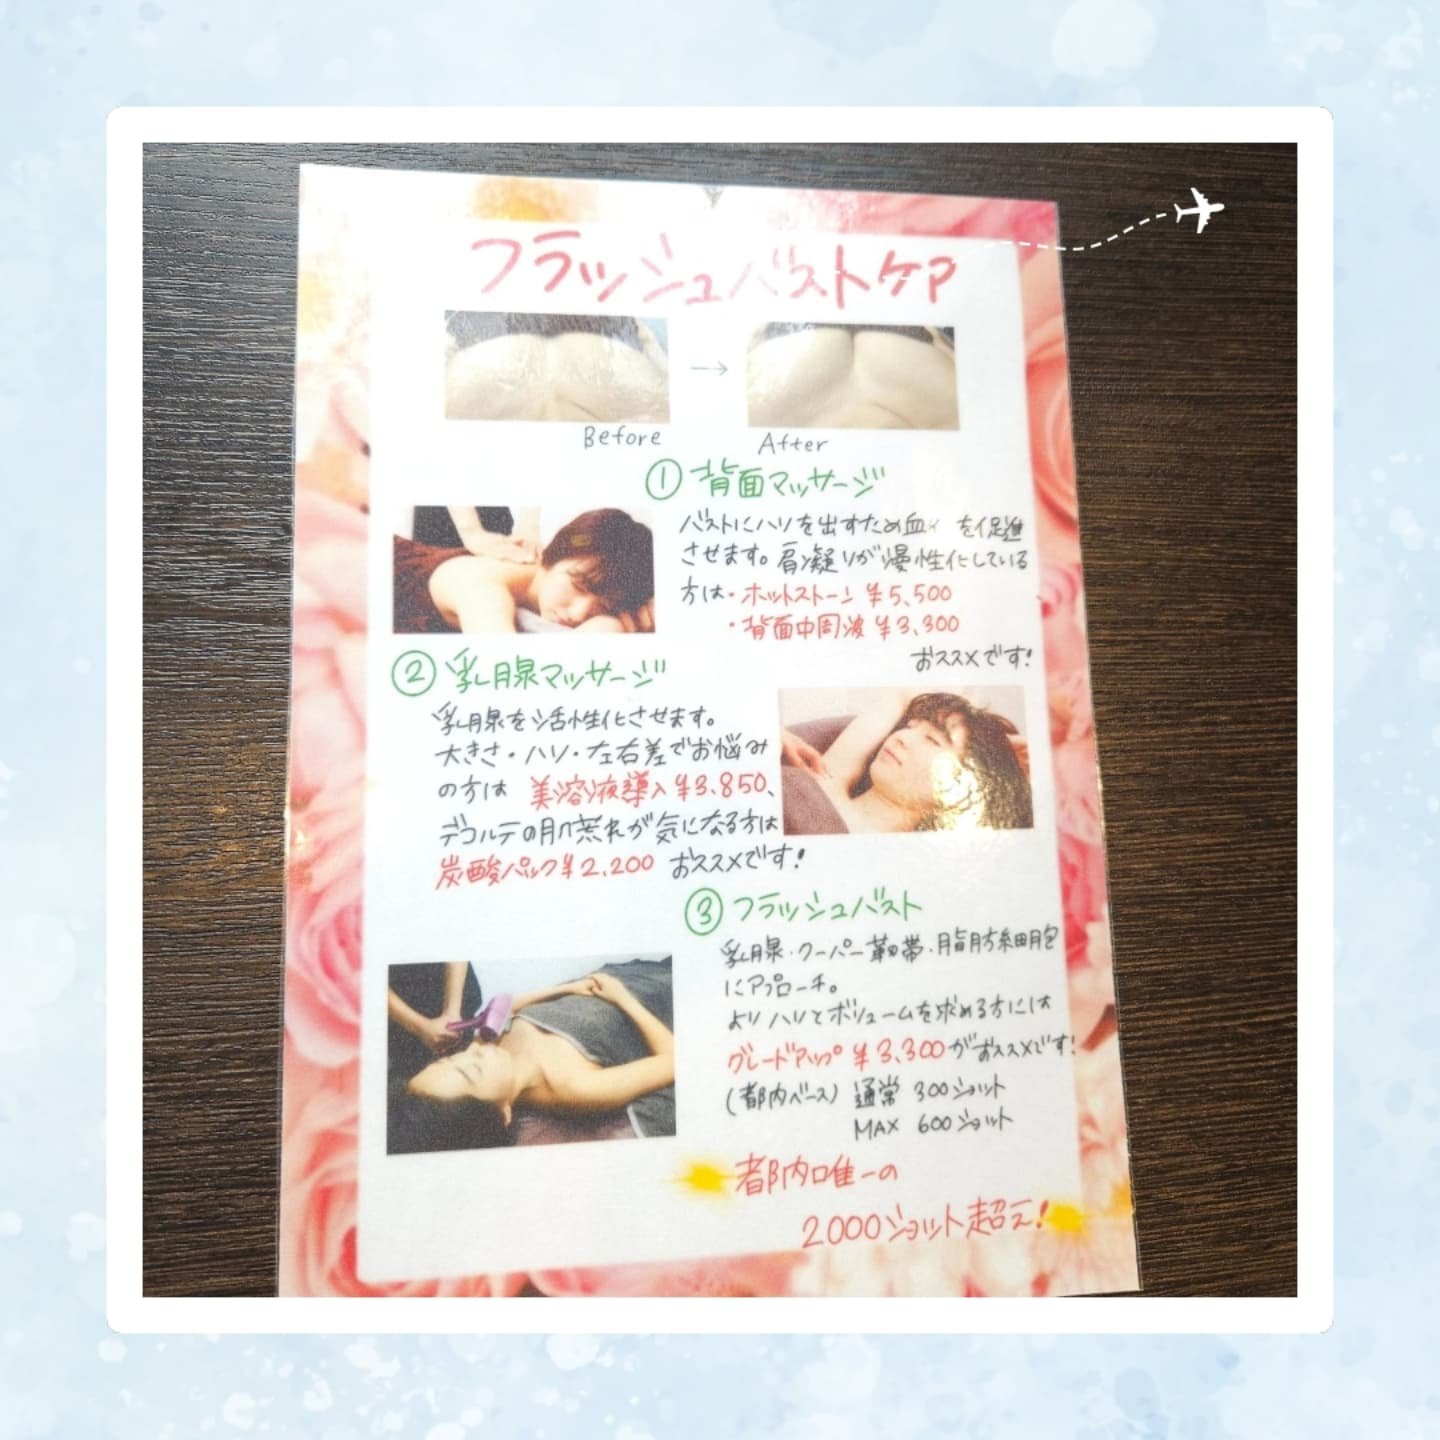 フラッシュバストケア
Before
→
After
① 背面マッサージ
バストにハリを出すため血 を促進
させます。肩凝りが慢性化している
方は・ホットストーン ¥5,500
・背面中周波 ¥3,300
おススメです!
② 乳腺マッサージ
乳腺を活性化させます。
大きさ・ハリ・左右差でお悩み
の方は 美溶液導入 ¥3.850、
デコルテの肌荒れが気になる方は
炭酸パック ¥2,200 おススメです!
③ フラッシュバスト
乳腺・クーパー靭帯・脂肪細胞
にアプローチ。
よりハリとボリュームを求める方には
グレードアップ ¥3,300がおススメです!
(都内ベース) 通常 300ショット
MAX 600ショット
都内唯一の
2000ショット超え!